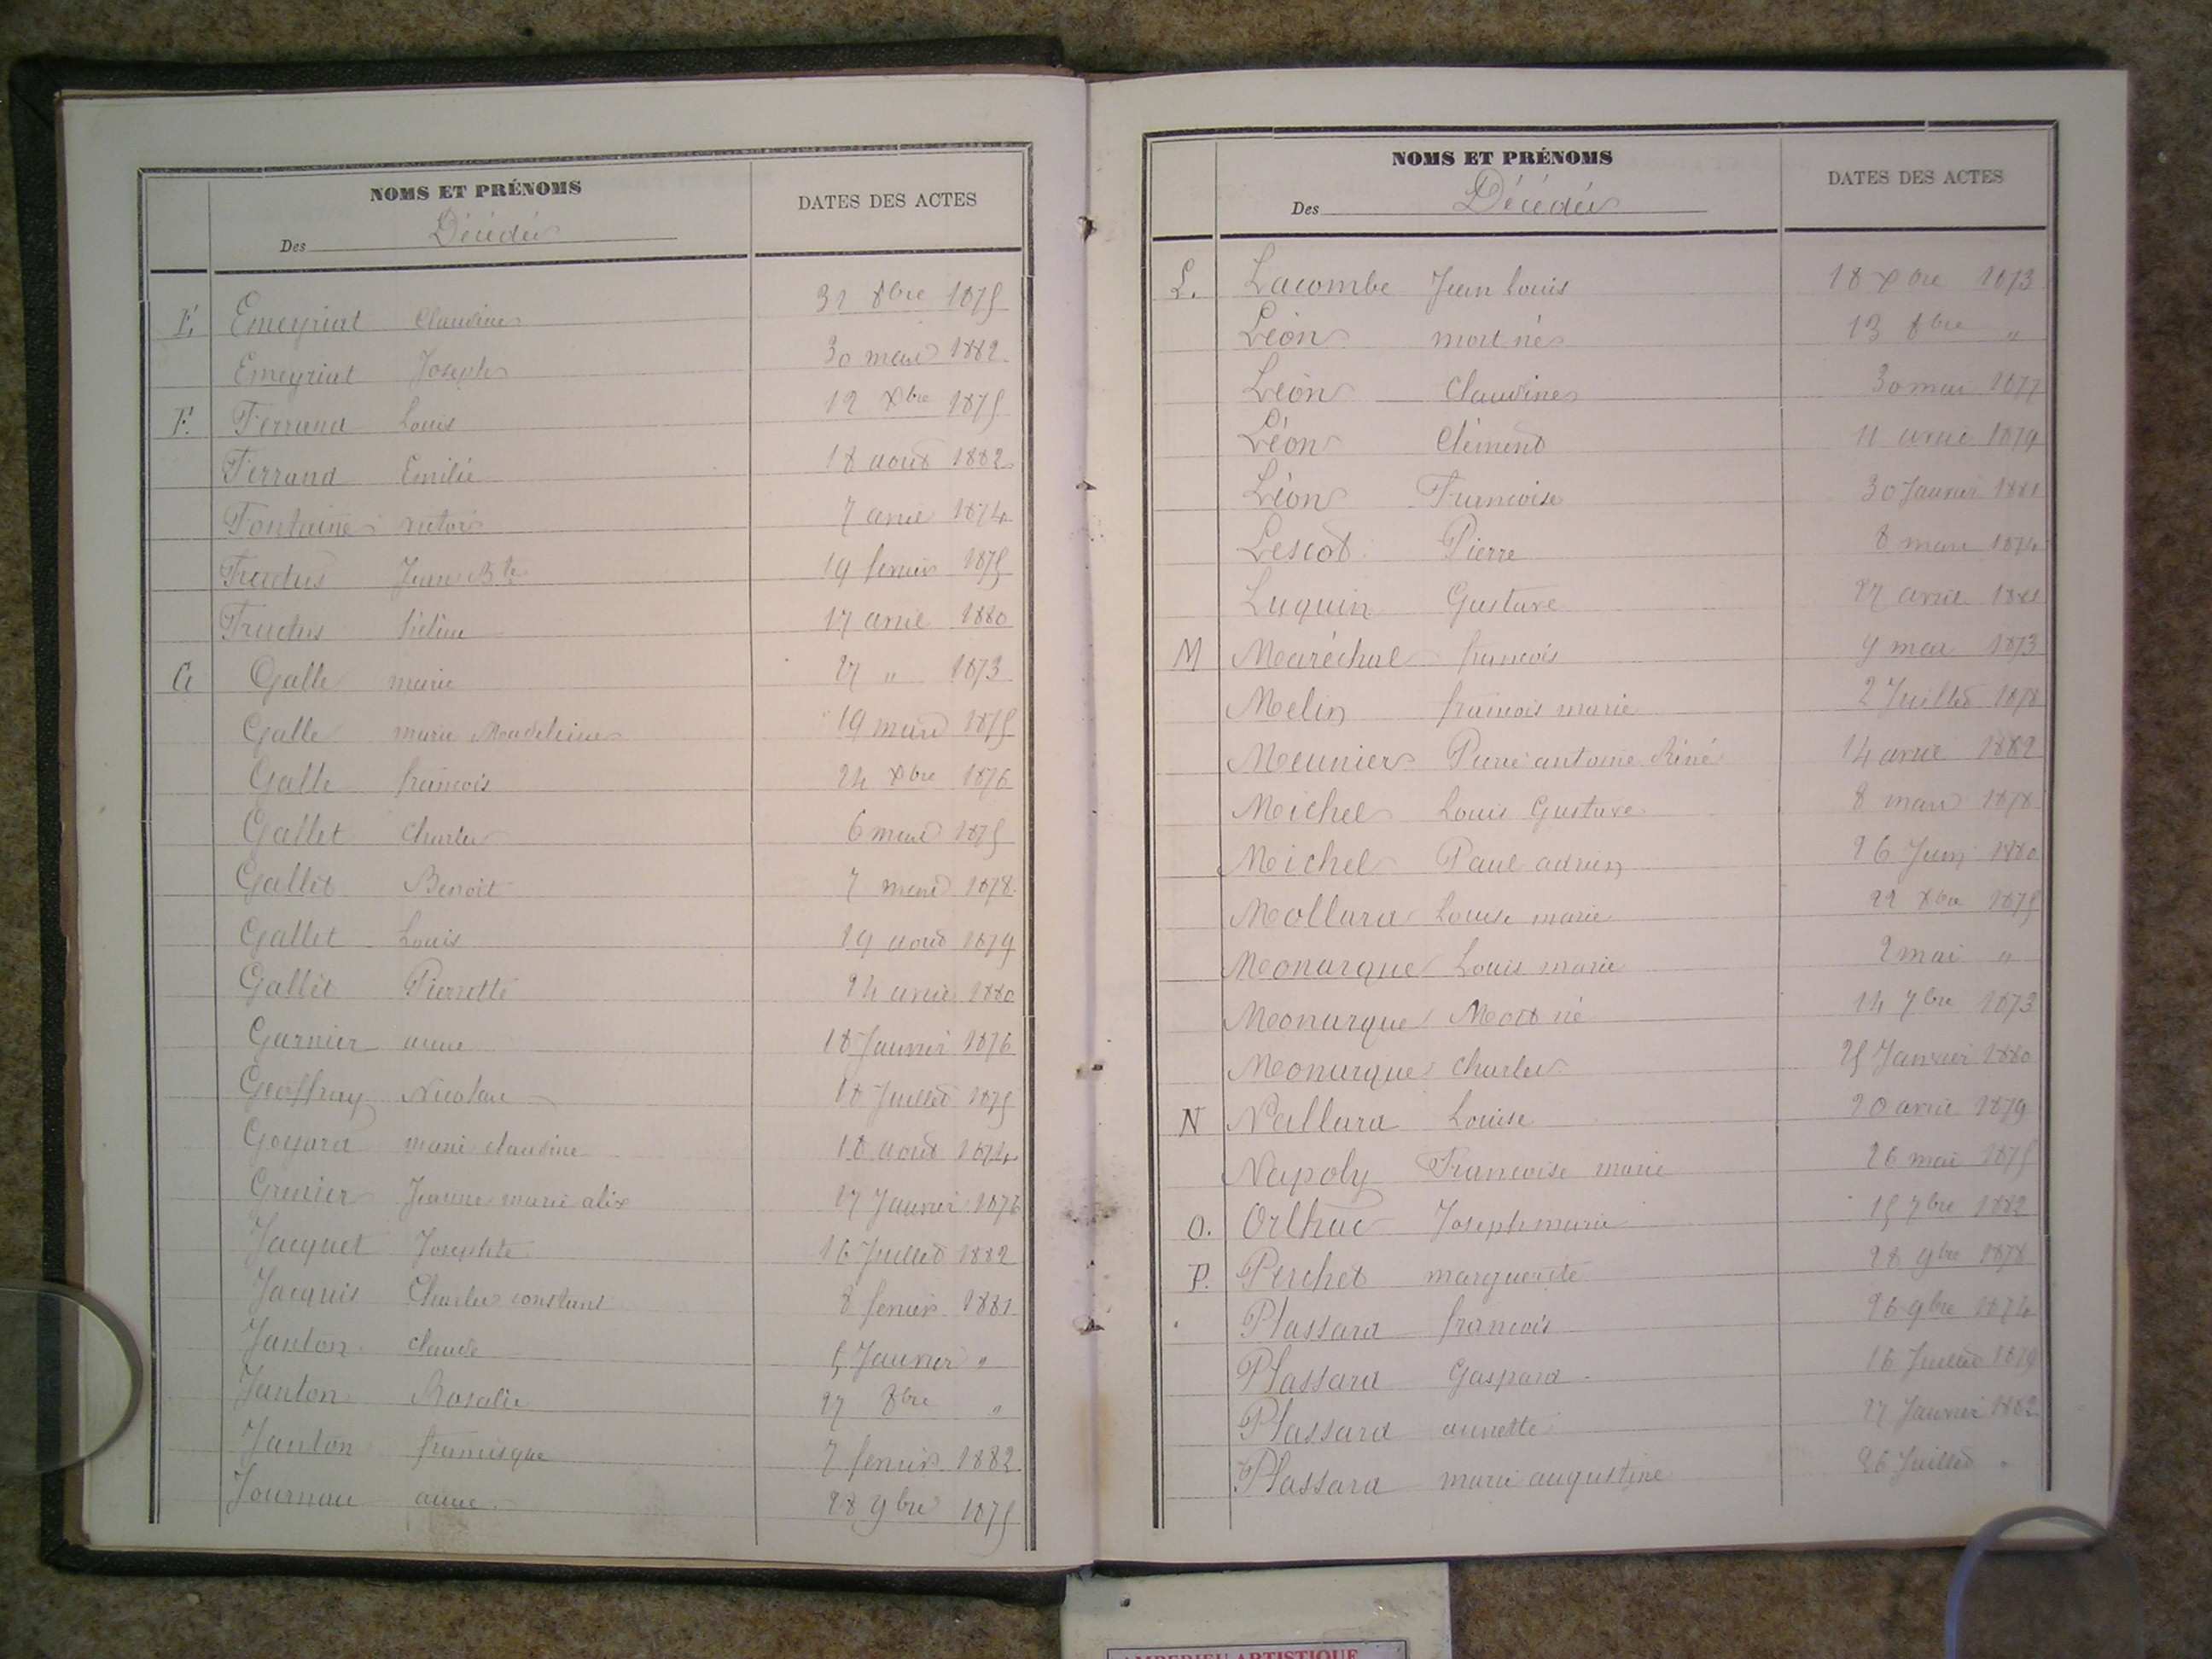 NOMS ET PRÉNOMS
Des Décédés
DATES DES ACTES
E. Emeyriat Claudine 31 8bre 1875
Emeyriat Joseph 30 mars 1882
F. Ferrand Louis 12 Xbre 1875
Ferrand Emilie 18 aout 1882
Fontaine victor 7 avril 1874
Fructus Jean Bte 19 fevrier 1875
Fructus 17 avril 1880
G Galle marie 27 " 1873
Galle marie Madeleine 19 mars 1875
Galle francois 24 Xbre 1876
Gallet Charles 6 mars 1875
Gallet Benoit 7 mars 1878
Gallet Louis 19 aout 1879
Gallet Pierrette 24 avril 1880
Garnier anne 18 Janvier 1876
Geoffray Nicolas 18 Juillet 1875
Goyard marie claudine 18 aout 1874
Grenier Jeanne marie alix 17 Janvier 1876
Jacquet Josephte 16 Juillet 1882
Jacquis Charles constant 8 fevrier 1881
Janton claude 5 Janvier "
Janton Rosalie 27 8bre "
Janton francisque 7 fevrier 1882
Journau anne 28 9bre 1875
NOMS ET PRÉNOMS
Des Décédés
DATES DES ACTES
L. Lacombe Jean Louis 18 Xbre 1873
Léon mort né 13 8bre "
Léon Claudine 30 mai 1877
Léon Clément 11 avril 1879
Léon Francoise 30 Janvier 1881
Lescot Pierre 8 mars 1874
Luquin Gustave 27 avril 1881
M Maréchal francois 9 mai 1873
Melin francois marie 2 Juillet 1878
Meunier Pierre antoine Réné 14 avril 1882
Michel Louis Gustave 8 mars 1878
Michel Paul adrien 26 Juin 1880
Mollard Louise marie 22 Xbre 1875
Monarque Louis marie 2 mai "
Monarque Mort né 14 7bre 1873
Monarque Charles 25 Janvier 1880
N Nallard Louise 20 avril 1879
Napoly Francoise marie 26 mai 1875
O. Orlhac Joseph marie 15 7bre 1882
P. Perchet marguerite 28 9bre 1878
Plassard francois 26 9bre 1874
Plassard Gaspard 16 Juillet 1879
Plassard annette 27 Janvier 1882
Plassard marie augustine 26 Juillet "
AMBERIEU ARTISTIQUE